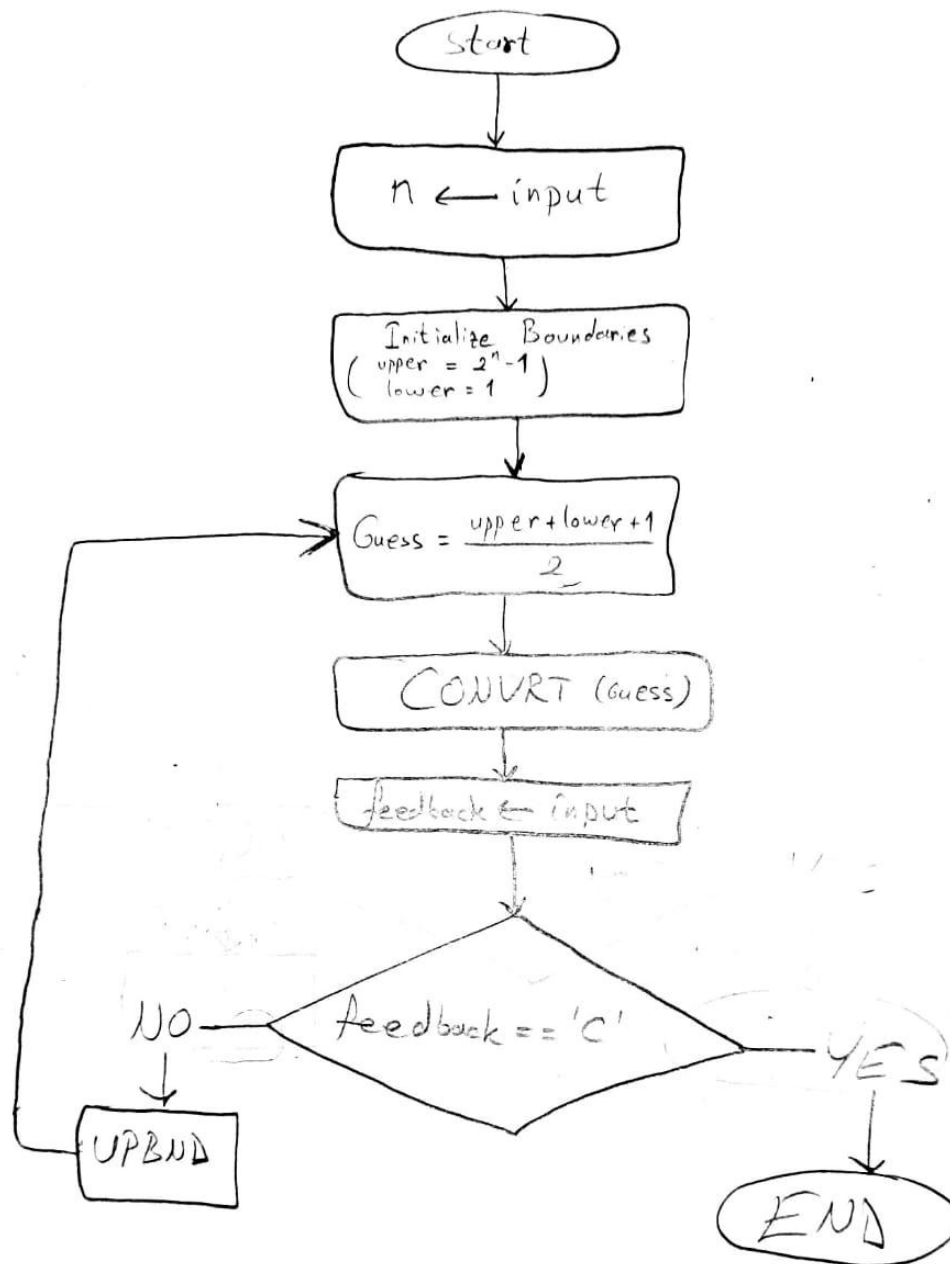 start
n ← input
Initialize Boundaries
( upper = 2ⁿ-1
lower = 1 )
Guess = upper + lower + 1
2
CONVRT (Guess)
feedback ← input
feedback == 'C'
NO
YES
UPBND
END